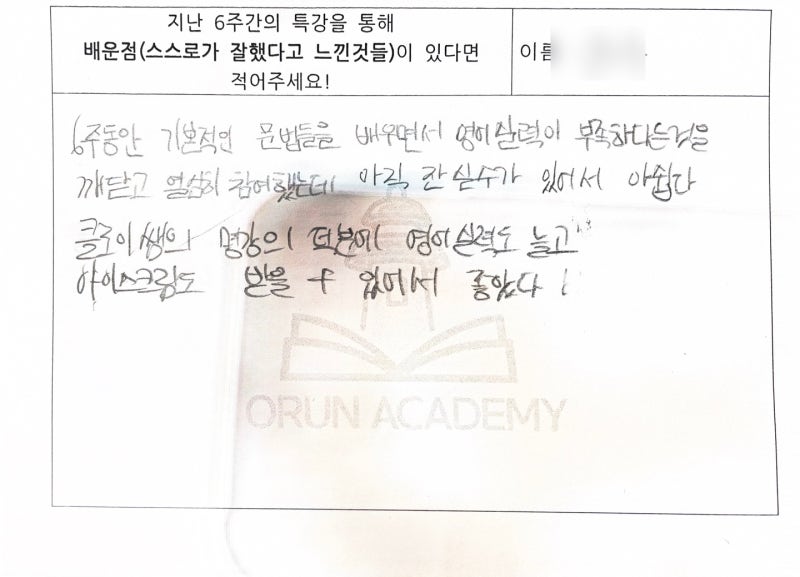 지난 6주간의 특강을 통해
배운점(스스로가 잘했다고 느낀것들)이 있다면
적어주세요!
이름
6주동안 기본적인 문법들을 배우면서 영어실력이 부족하다는것을
깨닫고 열심히 참여했는데 아직 잔실수가 있어서 아쉽다
클로이쌤의 명강의 덕분에 영어실력도 늘고
아이스크림도 받을 수 있어서 좋았다!
ORUN ACADEMY